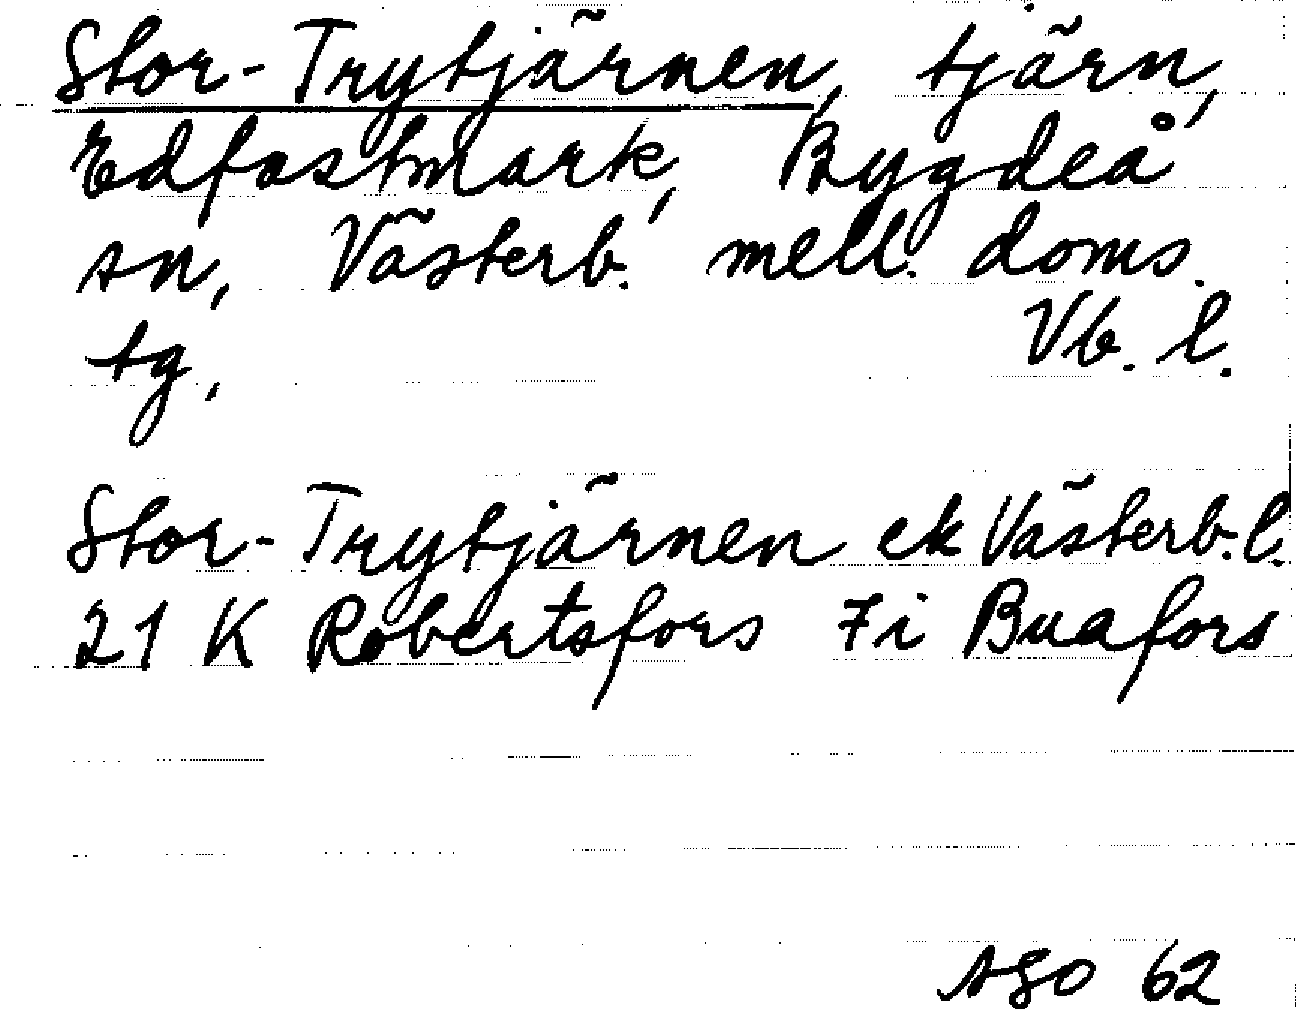 Stor-Trytjärnen, tjärn,
Edfastmark, Bygdeå
sn, Västerb. mell. doms.
tg, Vb. l.
Stor-Trytjärnen ek Västerb. l.
21 K Robertsfors 7i Buafors
ASO 62